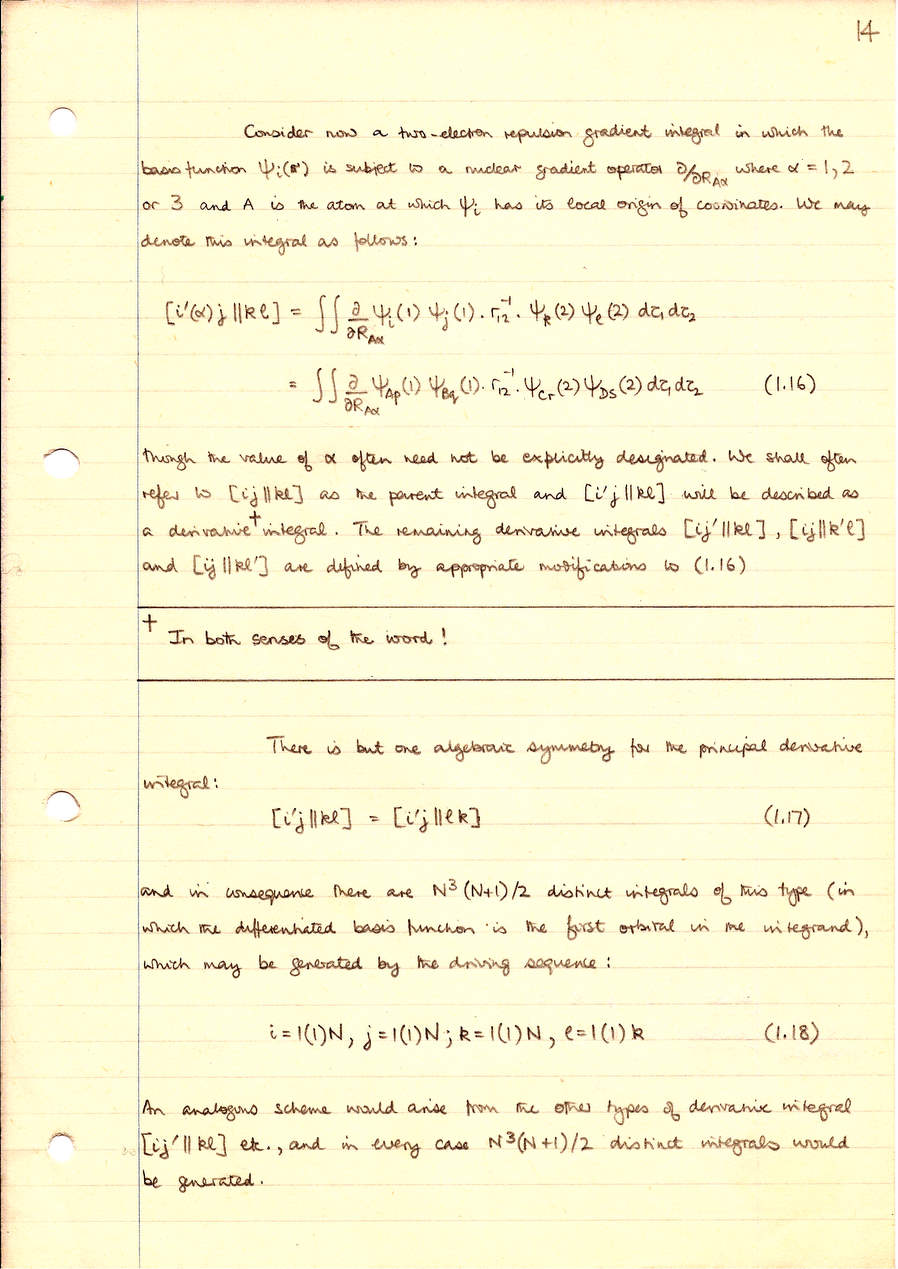 14
Consider now a two-electron repulsion gradient integral in which the
basis function Ψi(r) is subject to a nuclear gradient operator ∂/∂RAα where α = 1, 2
or 3 and A is the atom at which Ψi has its local origin of coordinates. We may
denote this integral as follows:
[i′(α)j||kl] = ∫∫ ∂/∂RAα Ψi(1) Ψj(1) . r12⁻¹ . Ψk(2) Ψl(2) dτ1 dτ2
= ∫∫ ∂/∂RAα ΨAp(1) ΨBq(1) . r12⁻¹ . ΨCr(2) ΨDs(2) dτ1 dτ2 (1.16)
though the value of α often need not be explicitly designated. We shall often
refer to [ij||kl] as the parent integral and [i′j||kl] will be described as
a derivative† integral. The remaining derivative integrals [ij′||kl], [ij||k′l]
and [ij||kl′] are defined by appropriate modifications to (1.16)
† In both senses of the word!
There is but one algebraic symmetry for the principal derivative
integral:
[i′j||kl] = [i′j||lk] (1.17)
and in consequence there are N³(N+1)/2 distinct integrals of this type (in
which the differentiated basis function is the first orbital in the integrand),
which may be generated by the driving sequence:
i=1(1)N, j=1(1)N; k=1(1)N, l=1(1)k (1.18)
An analogous scheme would arise from the other types of derivative integral
[ij′||kl] etc., and in every case N³(N+1)/2 distinct integrals would
be generated.